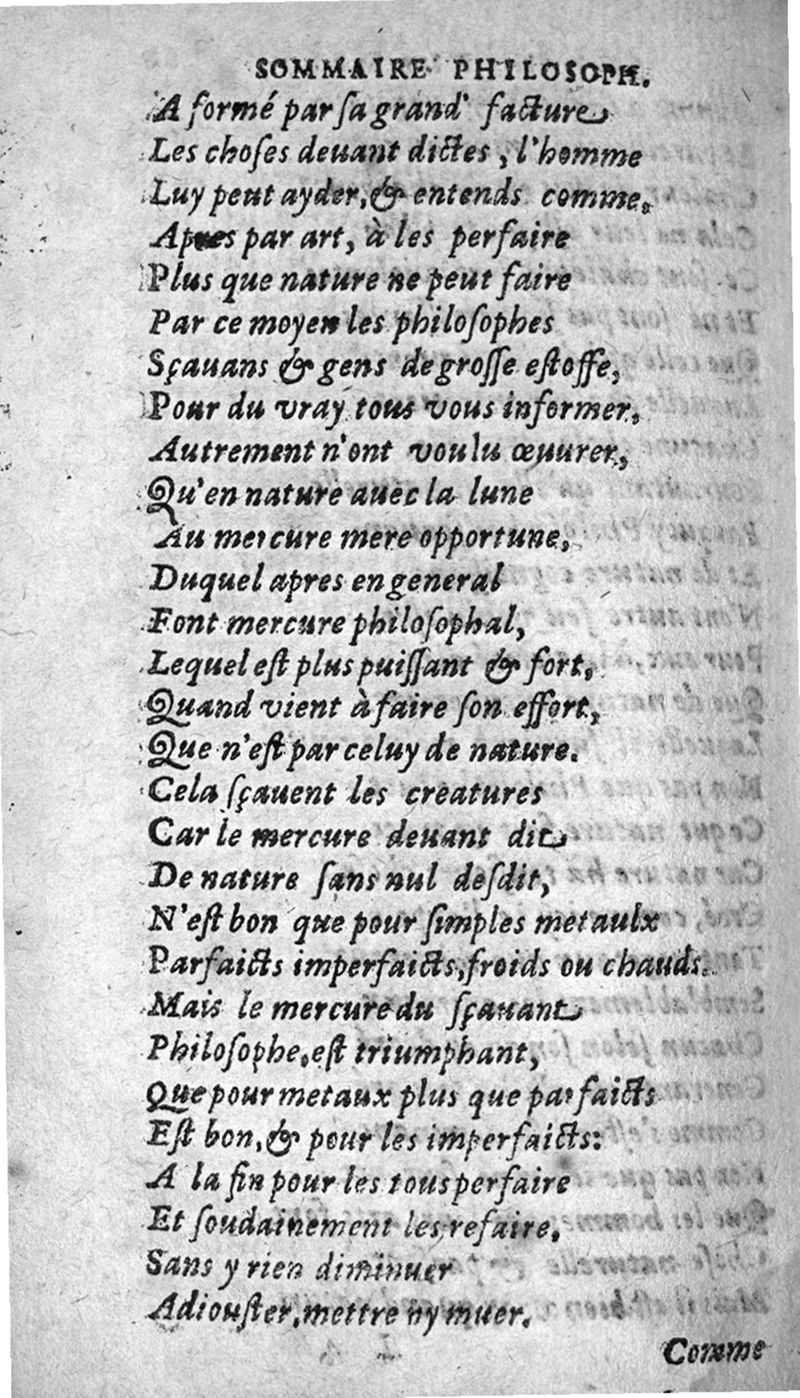 SOMMAIRE PHILOSOPH.
A formé par ſa grand' facture
Les choſes deuant dictes, l'homme
Luy peut ayder, & entends comme,
Apres par art, à les perfaire
Plus que nature ne peut faire
Par ce moyen les philoſophes
Sçauans & gens de groſſe eſtoffe,
Pour du vray tous vous informer,
Autrement n'ont voulu œuurer,
Qu'en nature auec la lune
Au mercure mere opportune,
Duquel apres en general
Font mercure philoſophal,
Lequel eſt plus puiſſant & fort,
Quand vient à faire ſon effort,
Que n'eſt par celuy de nature.
Cela ſçauent les creatures
Car le mercure deuant dit
De nature ſans nul deſdit,
N'eſt bon que pour ſimples metaulx
Parfaicts imperfaicts, froids ou chauds.
Mais le mercure du ſçauant
Philoſophe, eſt triumphant,
Que pour metaux plus que parfaicts
Eſt bon, & pour les imperfaicts:
A la fin pour les tous perfaire
Et ſoudainement les refaire,
Sans y rien diminuer
Adiouſter, mettre ny muer.
Comme